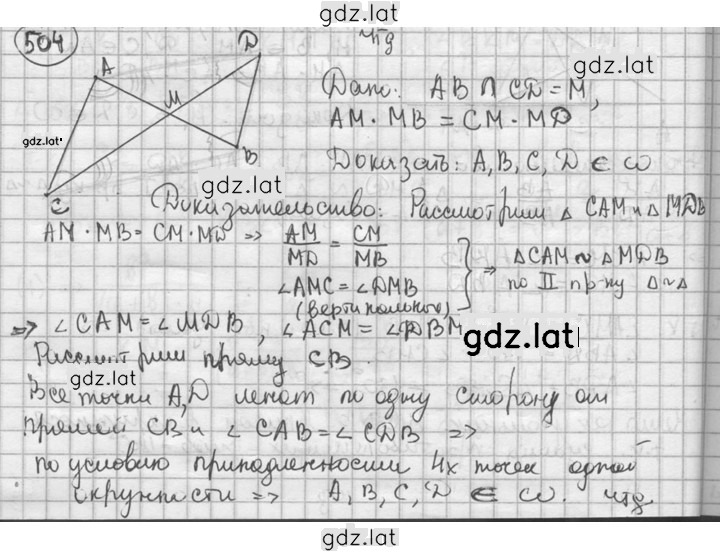 gdz.lat
504
чтд
D
A
M
B
C
gdz.lat
gdz.lat
Дано: AB ∩ CD = M,
AM · MB = CM · MD
Доказать: A, B, C, D ∈ ω
gdz.lat
Доказательство: Рассмотрим △ CAM и △ MDB
AM · MB = CM · MD => AM/MD = CM/MB
∠AMC = ∠DMB
(вертикальные)
} => △CAM ~ △MDB
по II пр-ку △~△
=> ∠CAM = ∠MDB, ∠ACM = ∠DBM
gdz.lat
Рассмотрим прямую CB.
gdz.lat
Все точки A, D лежат по одну сторону от
прямой CB и ∠CAB = ∠CDB =>
по условию принадлежности 4х точек одной
окружности => A, B, C, D ∈ ω. чтд
gdz.lat